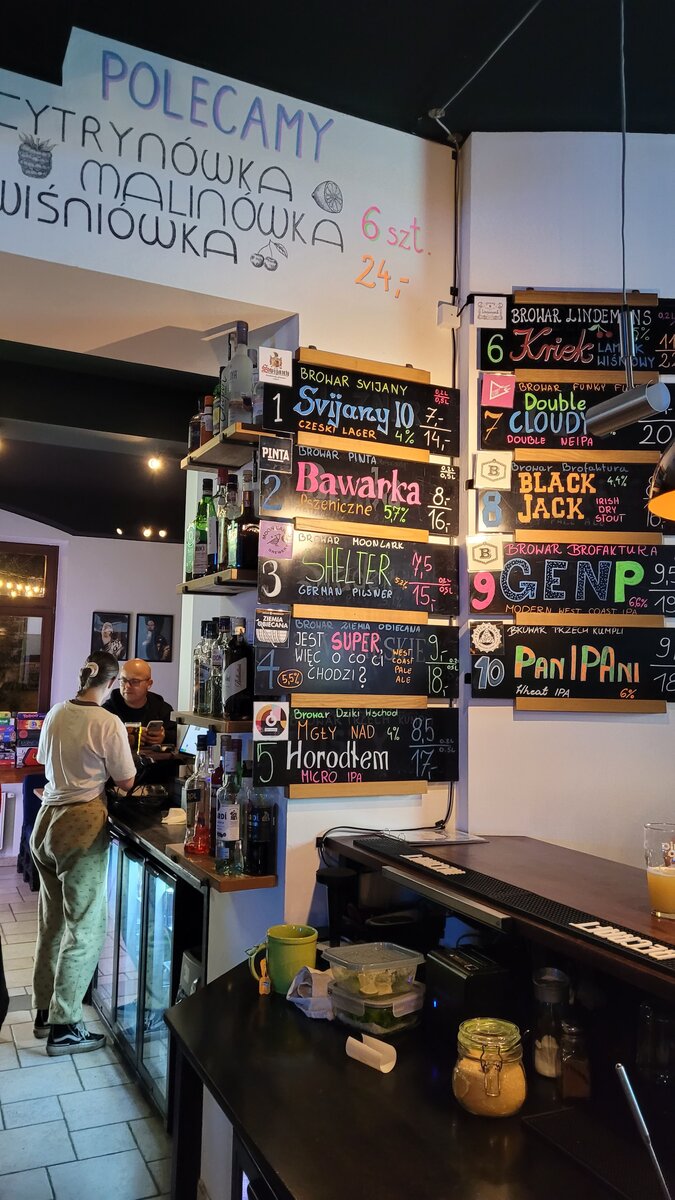 POLECAMY
CYTRYNÓWKA
MALINÓWKA
WIŚNIÓWKA
6 szt.
24,-
BROWAR SVIJANY
1 Svijany 10 7,- 0,2L
CZESKI LAGER 4% 14,- 0,5L
PINTA
BROWAR PINTA
2 Bawarka 8,- 0,2L
Pszeniczne 5,7% 16,- 0,5L
BROWAR MOONLARK
3 SHELTER 5,2% 7,5 0,2L
GERMAN PILSNER 15,- 0,5L
ZIEMIA OBIECANA
BROWAR ZIEMIA OBIECANA
4 JEST SUPER, 9,- 0,2L
WIĘC O CO CI WEST COAST PALE ALE
5,5% CHODZI? 18,- 0,5L
BROWAR DZIKI WSCHÓD
5 MGŁY NAD 4% 8,5 0,2L
Horodłem 17,- 0,5L
MICRO IPA
BROWAR LINDEMANS 0,2L
6 Kriek
WIŚNIOWY
BROWAR FUNKY
7 Double
CLOUDY
DOUBLE NEIPA 20
BROWAR BROFAKTURA
8 BLACK 4,4%
JACK IRISH DRY STOUT
BROWAR BROFAKTURA
9 GENP 9,5
MODERN WEST COAST IPA 6,6% 19
BROWAR TRZECH KUMPLI
10 PanIPAni
Wheat IPA 6% 18